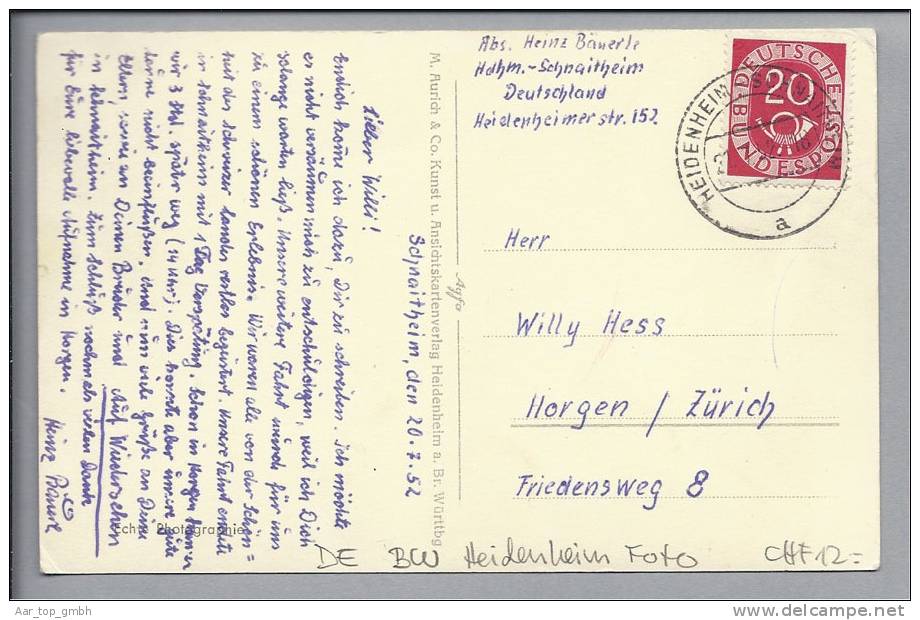 Abs. Heinz Bäuerle
Hdhm.-Schnaitheim
Deutschland
Heidenheimerstr. 152
DEUTSCHE
BUNDESPOST
20
HEIDENHEIM
a
Herr
Willy Hess
Horgen / Zürich
Friedensweg 8
Agfa
M. Aurich & Co. Kunst u. Ansichtskartenverlag Heidenheim a. Br. Württbg
Schnaitheim, den 20.7.52
Lieber Willi!
Endlich komme ich dazu, Dir zu schreiben. Ich möchte
es nicht versäumen mich zu entschuldigen, weil ich Dich
solange warten ließ. Unsere weitere Fahrt wurde für uns
zu einem schönen Erlebnis. Wir waren alle von der Schön=
heit des schweizer Landes restlos begeistert. Unsere Fahrt endete
in Schnaitheim mit 1 Tag Verspätung. Schon in Horgen
wir 3 Std. später weg (14 Uhr). Dies konnte aber unsere
Laune nicht beinflußen. Und nun viele Grüße an Deine
Eltern sowie an Deinen Bruder und Auf Wiedersehen
in Schnaitheim. Zum Schluß nochmals vielen Dank
für Eure liebevolle Aufnahme in Horgen.
Heinz Bäuerle
Echte Photographie
DE BW Heidenheim Foto CHF 12.=
Aar_top_gmbh
www.delcampe.net